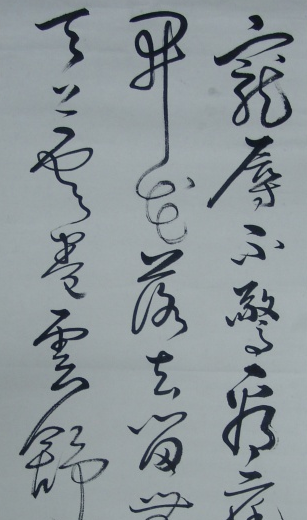 寵辱不驚看庭
開花落去留無
天上雲卷雲舒